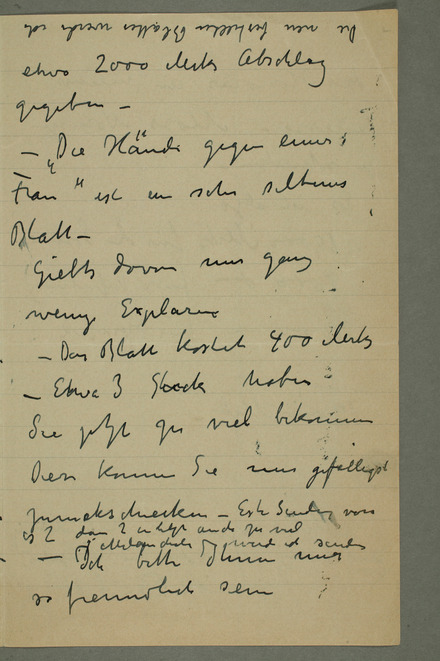 Die neu bestellten Blätter werde ich
etwa 2000 Mark Abschlag
gegeben –
– „Die Hände gegen einer
Frau" ist ein sehr seltenes
Blatt –
Giebts davon nur ganz
wenige Explare
– Das Blatt kostet 400 Mark
– Etwa 3 Stück haben
Sie jetzt zu viel bekommen
Diese können Sie mir gefälligst
zurückschicken – Erste Sendung von
es 2 dann 2 auch zu viel
werd ich senden
– Ich bitte Ihnen mir
so freundlich sein